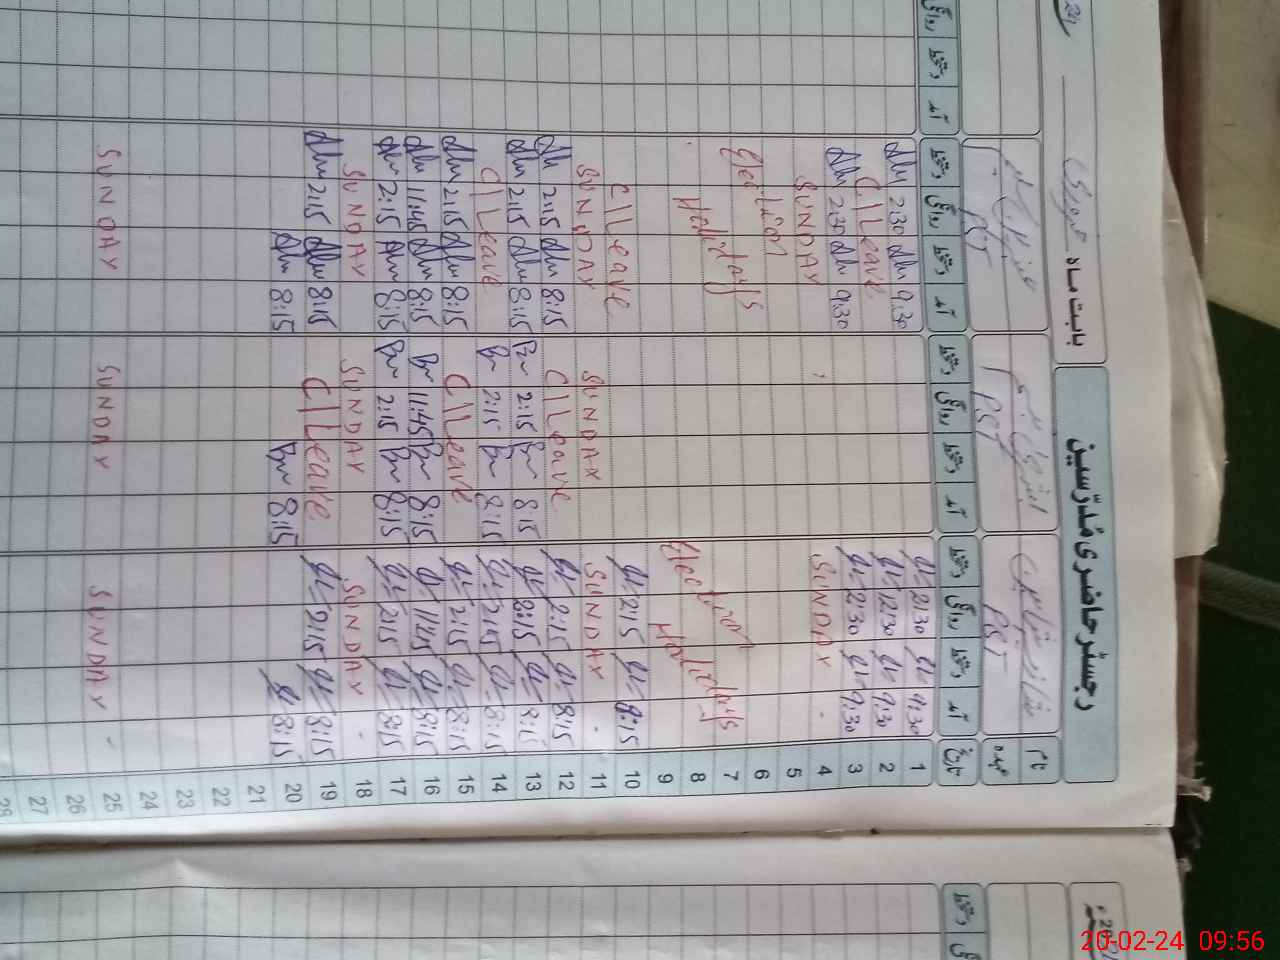 رجسٹر حاضری مُدرّسین
بابت ماہ فروری
نام
عہدہ PST PST PST
تاریخ آمد دستخط روانگی دستخط آمد دستخط روانگی دستخط آمد دستخط روانگی دستخط آمد دستخط روانگی
1 9:30 2:30 9:30 2:30
2 9:30 12:30 C/Leave
3 9:30 2:30 9:30 2:30
4 SUNDAY SUNDAY
5
6
7 Election
8 Election Holidays Holidays
9
10 9:15 2:15 C/Leave
11 SUNDAY SUNDAY SUNDAY
12 8:15 2:15 C/Leave 8:15 2:15
13 8:15 2:15 8:15 2:15 8:15 2:15
14 8:15 2:15 8:15 2:15 C/Leave
15 8:15 2:15 C/Leave 8:15 2:15
16 8:15 11:45 8:15 11:45 8:15 11:45
17 8:15 2:15 8:15 2:15 8:15 2:15
18 SUNDAY SUNDAY SUNDAY
19 8:15 2:15 C/Leave 8:15 2:15
20 8:15 8:15 8:15
21
22
23
24
25 SUNDAY SUNDAY SUNDAY
26
27
28
دستخط
20-02-24 09:56